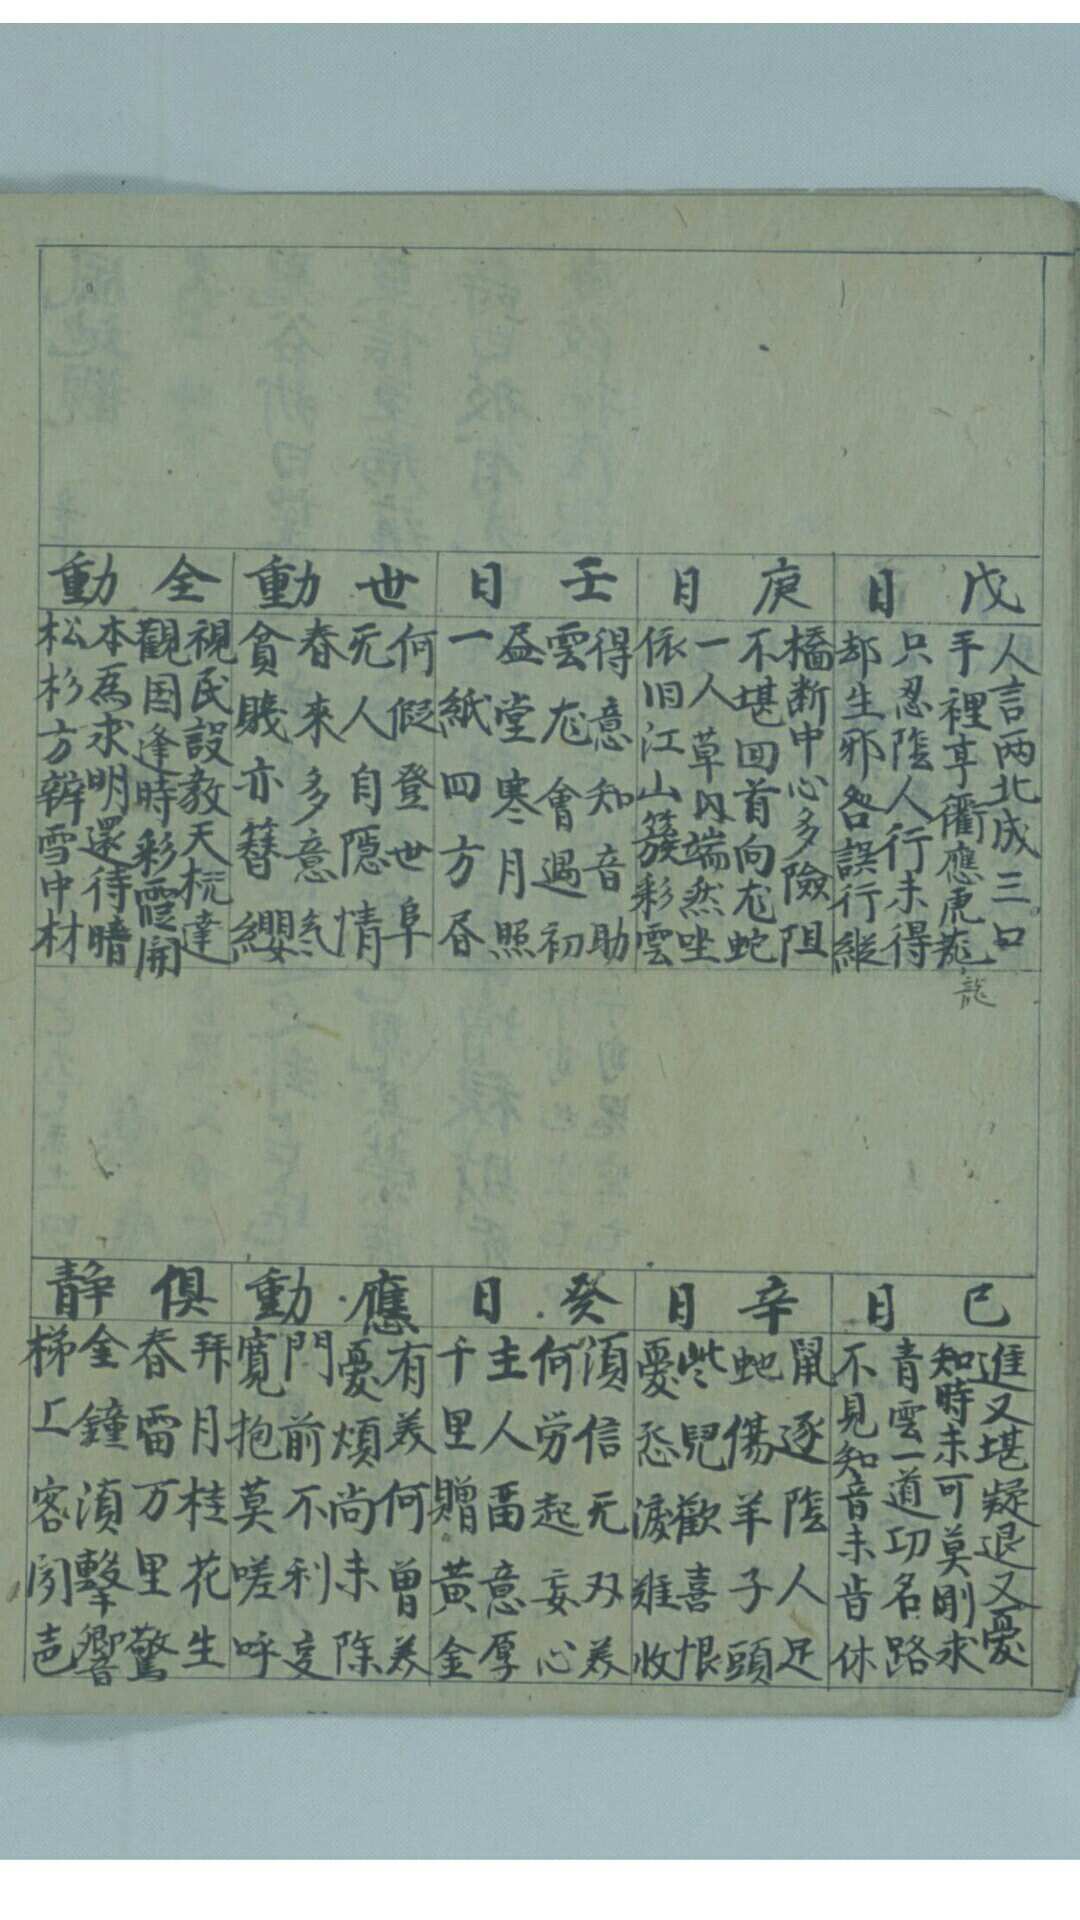 戊日
人言兩北成三口
手裡亨衢應虎龍
龍
只忍陰人行未得
却生邪咎誤行縱
庚日
橋断中心多險阻
不堪回首向尨蛇
一人草內端然坐
依旧江山簇彩雲
壬日
得意知音助
雲尨會遇初
盈堂寒月照
一紙四方昏
世動
何假登世阜
无人自隱情
春來多意炁
貧賤亦簪纓
全動
視民設教天梳達
觀国逢時彩霞開
本為求明還待暗
松杉方辨雪中材
巳日
進又堪疑退又憂
知時未可莫剛求
青雲一道功名路
不見知音未肯休
辛日
鼠逐陰人足
虵傷羊子頭
些兒歡喜恨
憂恐淚難收
癸日
須信无双美
何劳起妄心
主人畱意厚
千里贈黃金
應動
有美何曾美
憂煩尚未除
門前不利変
寬抱莫嗟呼
俱静
拜月桂花生
春雷万里驚
金鐘湏擊響
梯上客